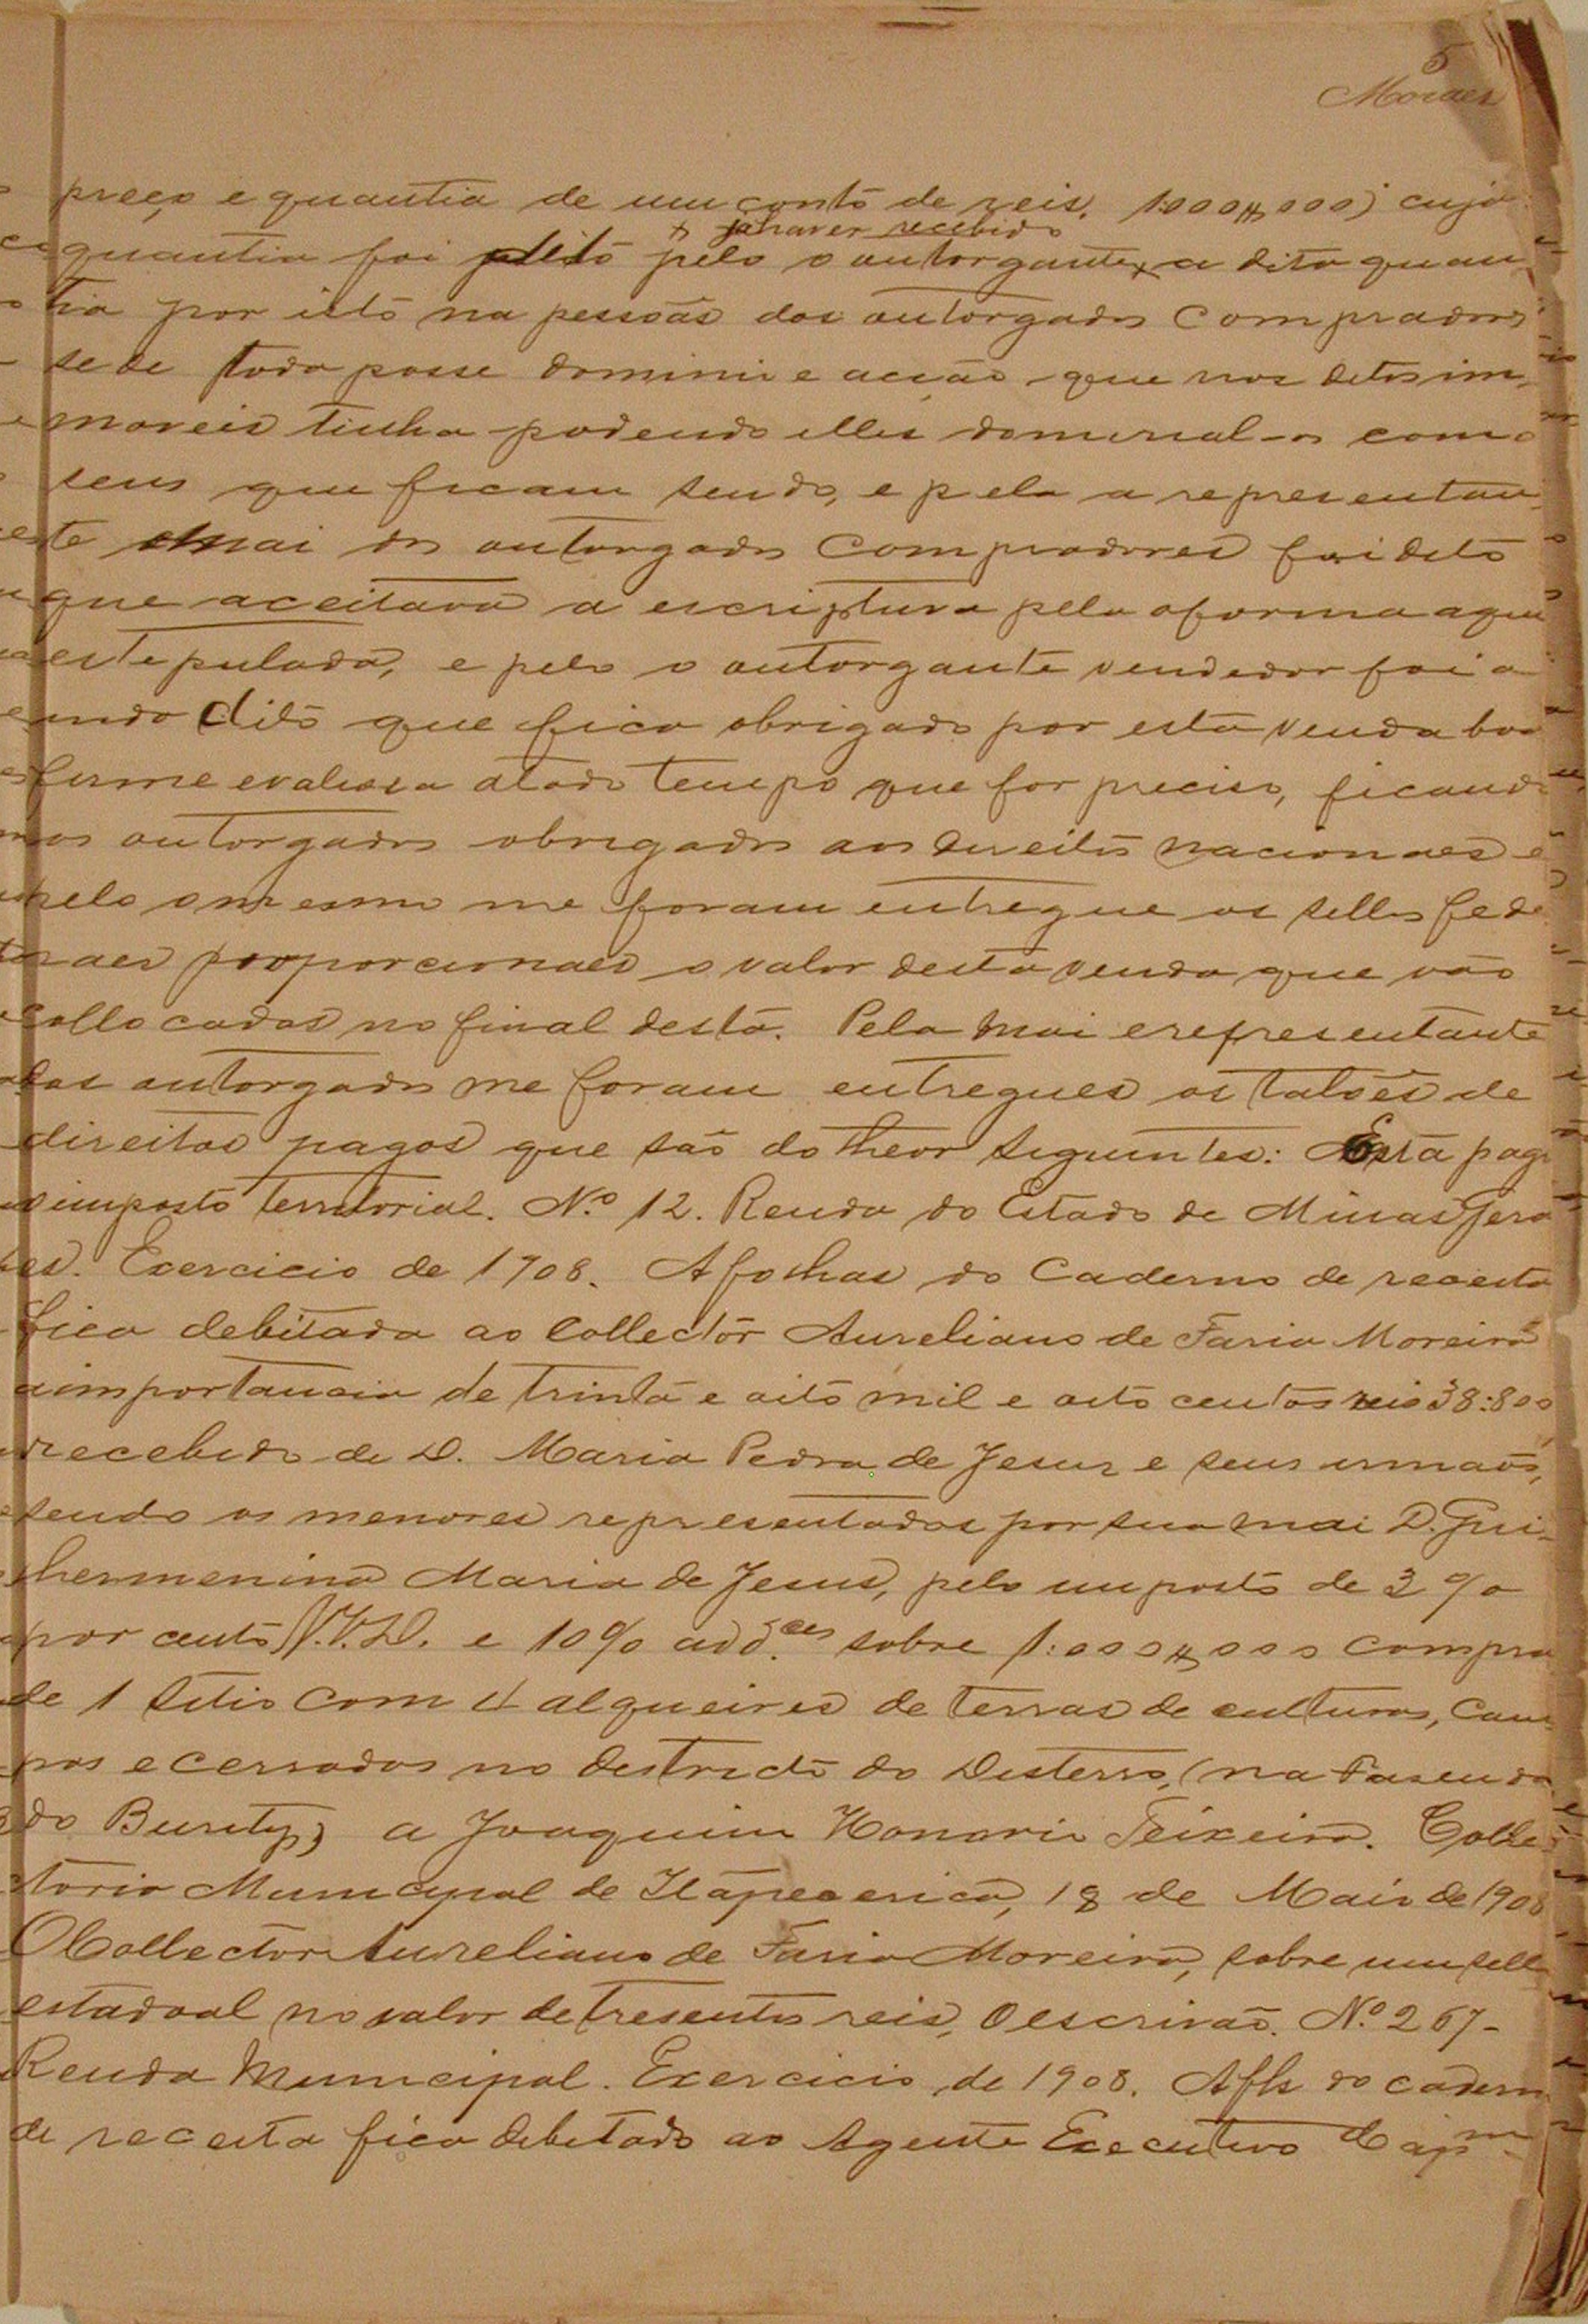 5
Moraes
preço e quantia de um conto de reis, 1:000$000) cuja
+ já haver recebido
quantia foi dito pelo o outorgante, a dita quan
tia por isto na pessoas dos outorgados compradores
sede toda posse dominio e acção que nos ditos im
moveis tinha podendo elles como
seus que ficam sendo, e pela a representan
te mai dos outorgados compradores foi dito
que aceitava a escriptura pela a forma aqui
estepulada, e pelo o outorgante vendedor foi a
indo dito que fica obrigado por esta venda boa
firme evaliosa atodo tempo que for preciso, ficando
os outorgados obrigados aos direitos nacionaes e
pelo omesmo me foram entregue os sellos fede
raes proporcionaes o valor desta venda que vão
collocados no final desta. Pela mai erepresentante
dos outorgados me foram entregues os talões de
direitos pagos que são do theor seguintes: Esta pago
o imposto territorial. Nº 12. Renda do Estado de Minas Gera
es. Exercicio de 1908. A folhas do Caderno de receita
fica debitada ao Collector Aureliano de Faria Moreira
aimportancia de trinta e oito mil e oito centos reis 38:800
recebido de D. Maria Pedra de Jesus e seus irmãos,
sendo os menores representados por sua mai D. Gui
lhermenina Maria de Jesus, pelo imposto de 3 %
por cento e 10% add.ces sobre 1:000$000 compra
de 1 sitio com 4 alqueires de terras de culturas, Cam
pos e cerrados no destricto do Desterro, (na Fasenda
do Burity) a Joaquim Honorio Teixeira. Colle
toria Municipal de Itapecerica, 18 de Maio de 1908
O Collector Aureliano de Faria Moreira, sobre um sello
estadoal no valor de tresentos reis, O escrivão. Nº 267-
Renda Municipal. Exercicio de 1908. A fls do caderno
de receita fica debetado ao Agente Executivo Cap.m